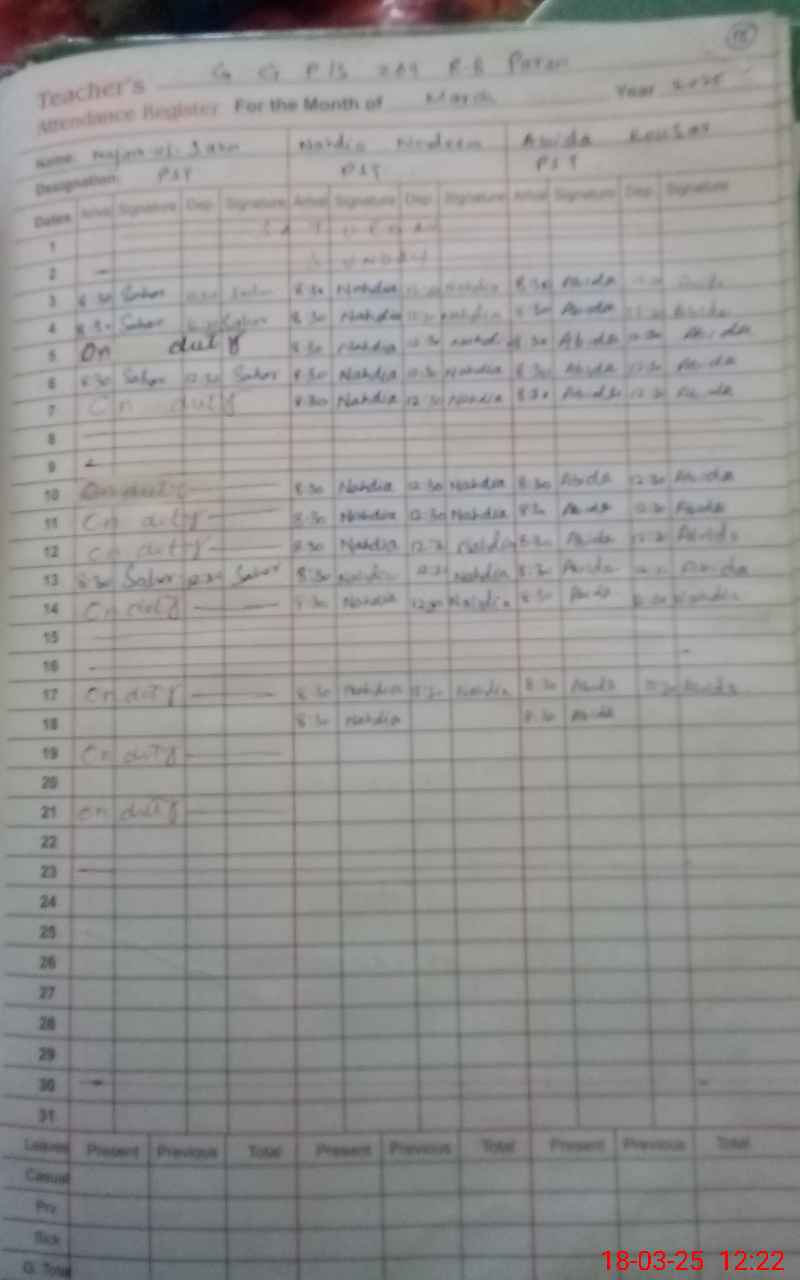 18
G G P/S 269 R-B
Teacher's
Attendance Register For the Month of March Year 2025
Name: Nahdia Nadeem Abida Kousar
Designation: PST PST PST
Dates Arrival Signature Dep. Signature Arrival Signature Dep. Signature Arrival Signature Dep. Signature
1 SATURDAY
2 SUNDAY
3 8:30 Sahar 8:30 Nahdia Nahdia 8:30 Abida
4 8:30 Sahar Sahar 8:30 Nahdia Nahdia 8:30 Abida Abida
5 On duty 8:30 Nahdia 12:30 Nahdia 8:30 Abida 12:30 Abida
6 8:30 Sahar 12:30 Sahar 8:30 Nahdia 12:30 Nahdia 8:30 Abida 12:30 Abida
7 On duty 8:30 Nahdia 12:30 Nahdia 8:30 Abida 12:30 Abida
8
9
10 On duty 8:30 Nahdia 12:30 Nahdia 8:30 Abida 12:30 Abida
11 On duty 8:30 Nahdia 12:30 Nahdia 8:30 Abida 12:30 Abida
12 On duty 8:30 Nahdia 12:30 Nahdia 8:30 Abida 12:30 Abida
13 8:30 Sahar 12:30 Sahar 8:30 Nahdia 12:30 Nahdia 8:30 Abida Abida
14 On duty 8:30 Nahdia 12:30 Nahdia 8:30 Abida
15
16
17 On duty 8:30 Nahdia 12:30 Nahdia 8:30 Abida 12:30 Abida
18 8:30 Nahdia 8:30 Abida
19 On duty
20
21 On duty
22
23
24
25
26
27
28
29
30
31
Leaves Present Previous Total Present Previous Total Present Previous Total
Casual
Prv.
Sick
G. Total
18-03-25 12:22